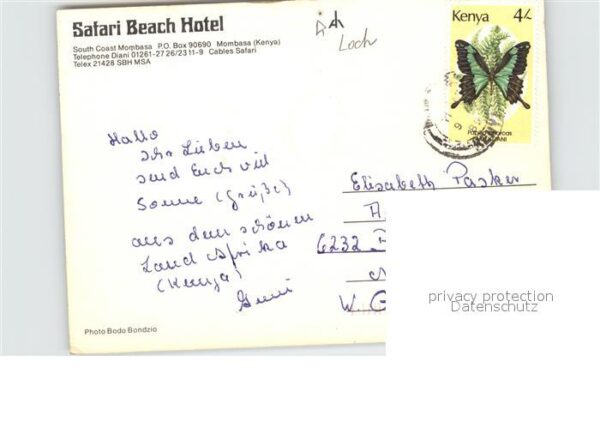 Safari Beach Hotel
South Coast Mombasa P.O. Box 90690 Mombasa (Kenya)
Telephone Diani 01261-27 26/23 11-9 Cables Safari
Telex 21428 SBH MSA
Loch
Kenya 4/-
Hallo
Ihr Lieben
send Euch viel
Sonne (Grüße)
aus dem schönen
Land Afrika
(Kenja)
Elisabeth Pasker
6232
W. G
Photo Bodo Bondzio
privacy protection
Datenschutz